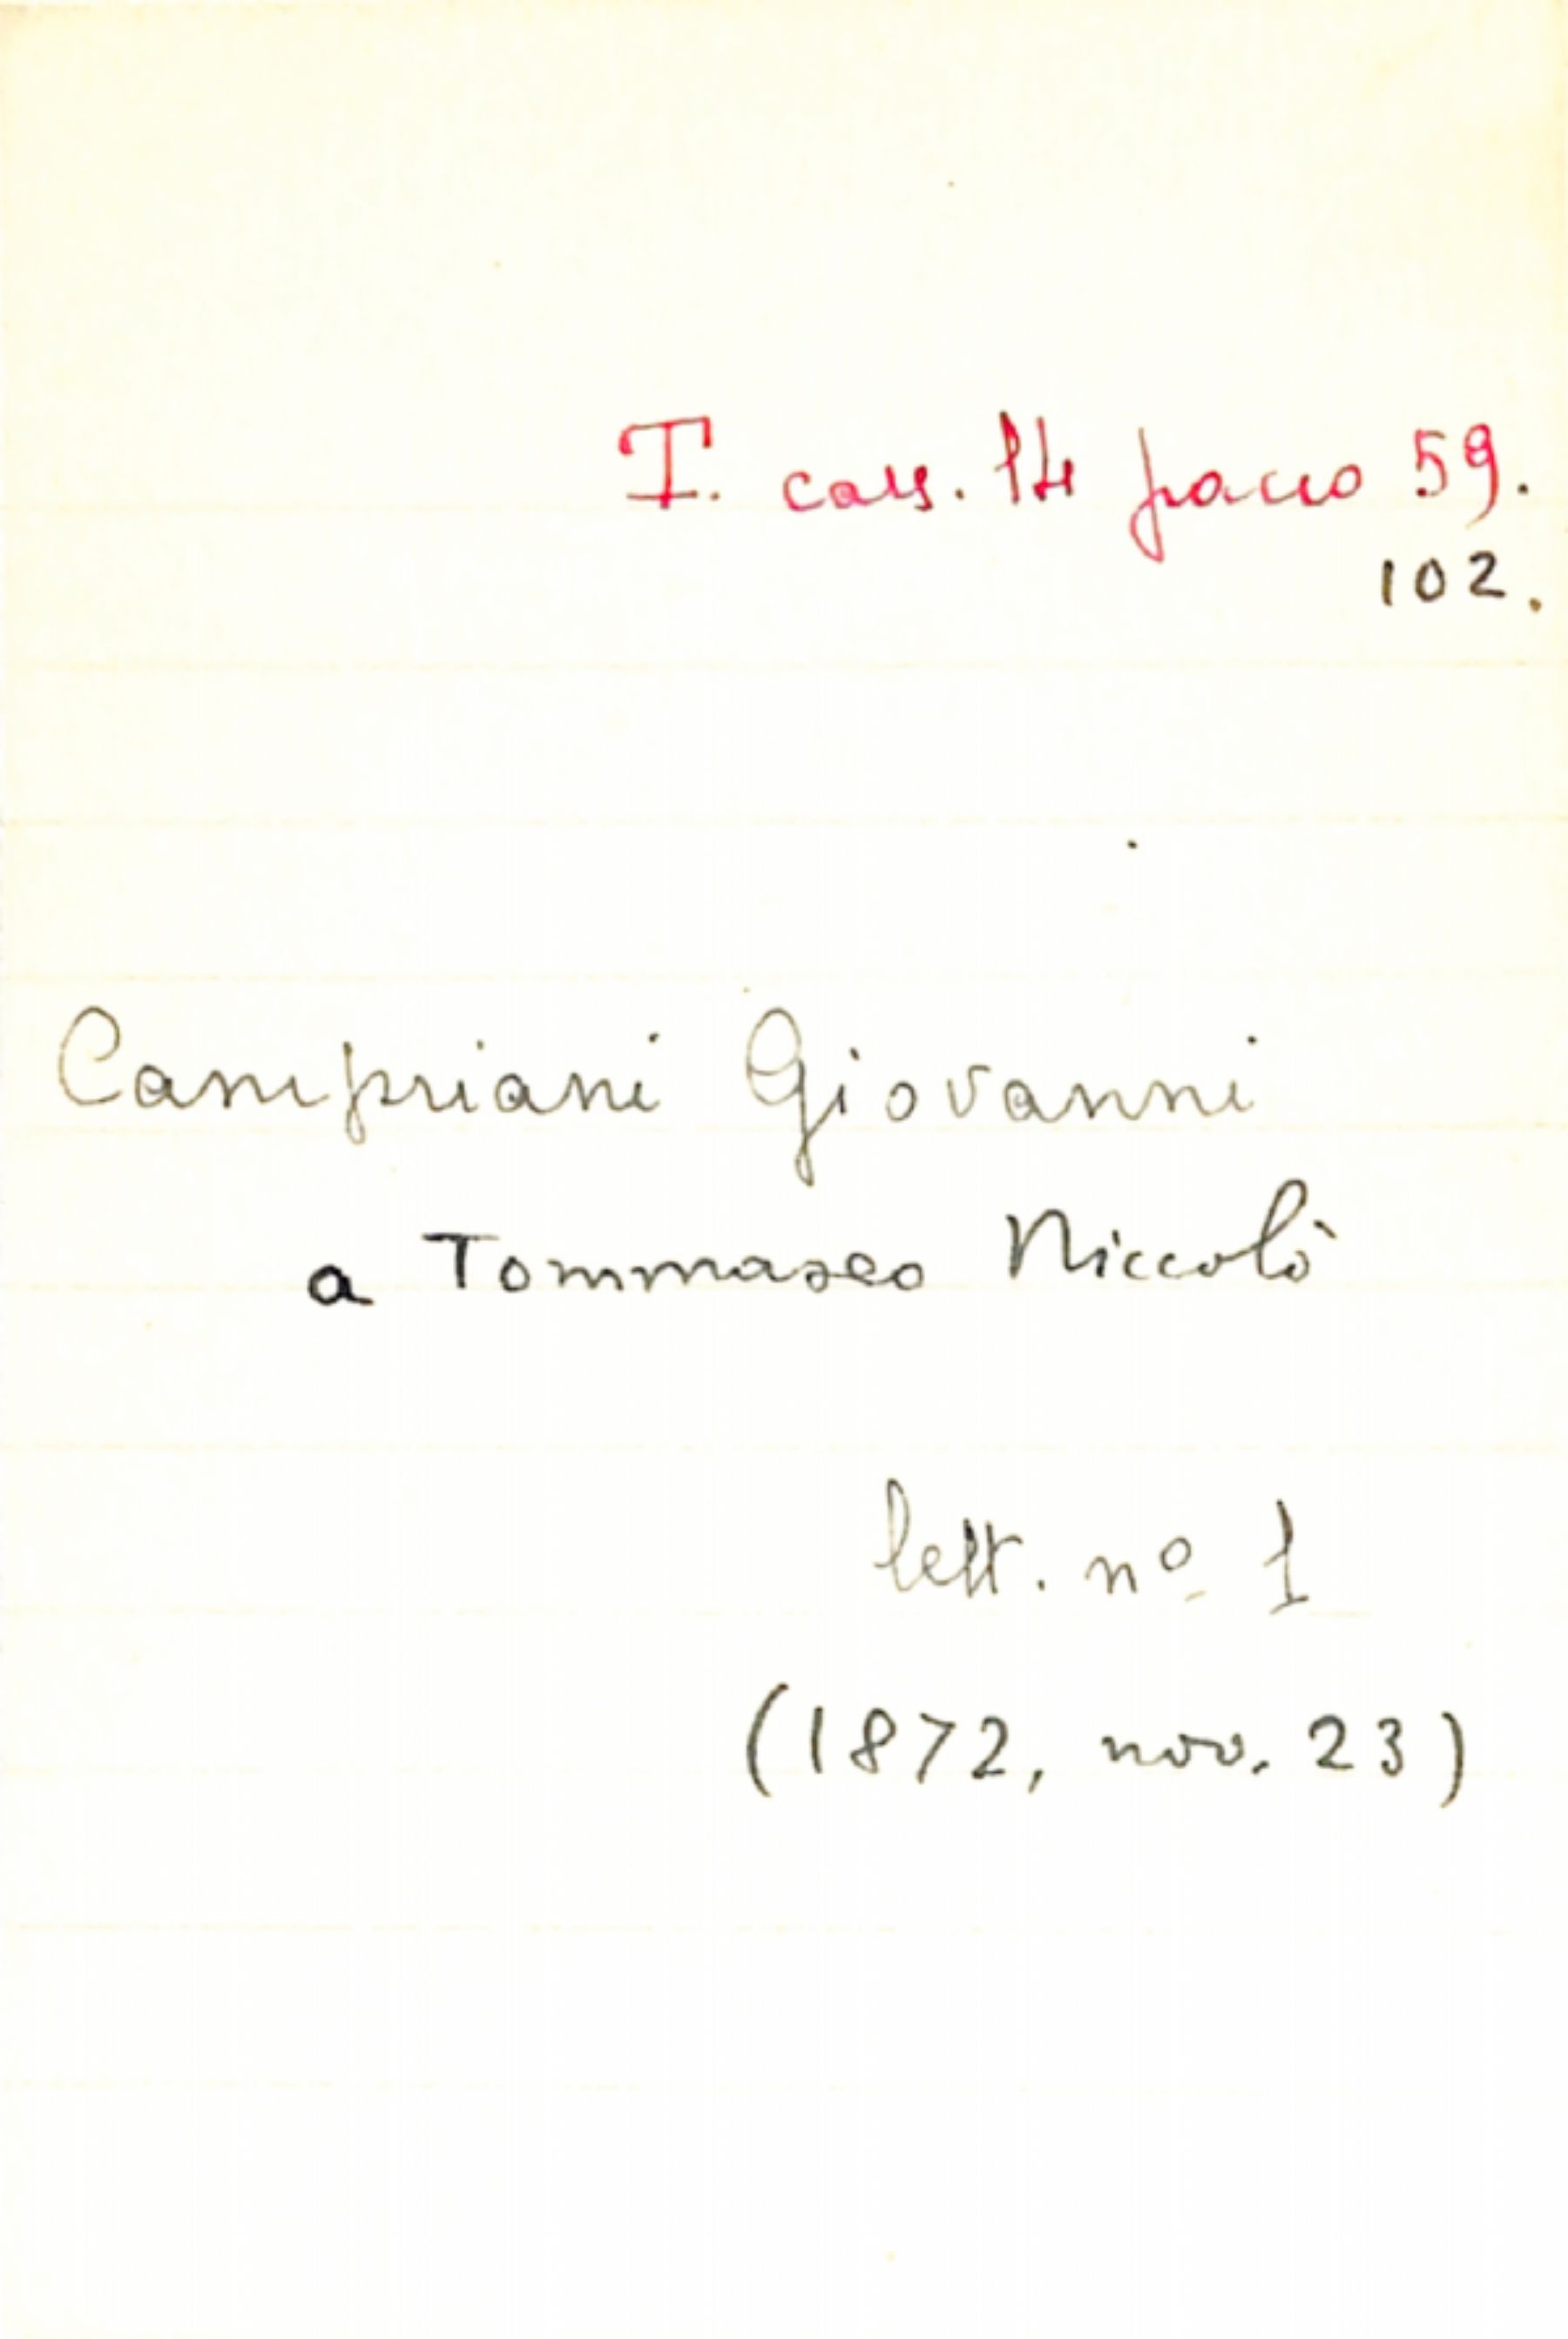 T. cass. 14 pacco 59.
102.
Campriani Giovanni
a Tommaseo Niccolò
lett. nº 1
(1872, nov. 23)